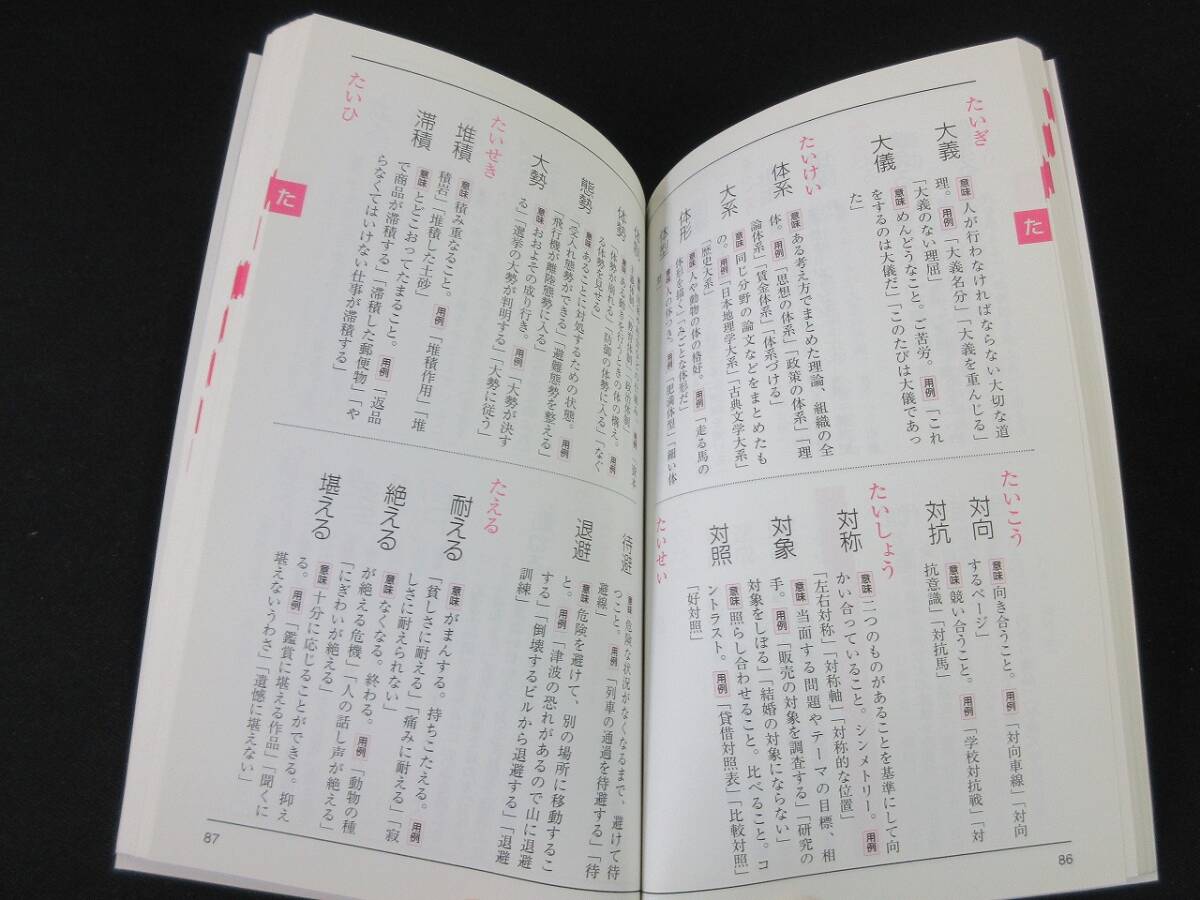 た
たいぎ
大義
意味 人が行わなければならない大切な道
理。用例「大義名分」「大義を重んじる」
「大義のない理屈」
大儀
意味 めんどうなこと。ご苦労。用例「これ
をするのは大儀だ」「このたびは大儀であっ
た」
たいけい
体系
意味 ある考え方でまとめた理論、組織の全
体。用例「思想の体系」「政策の体系」「理
論体系」「賃金体系」「体系づける」
大系
意味 同じ分野の論文などをまとめたも
の。用例「日本地理学大系」「古典文学大系」
「歴史大系」
体形
意味 人や動物の体の格好。用例「走る馬の
体形を描く」「みごとな体形だ」
体型
意味 人の体つき。用例「肥満体型」「細い体
たいこう
対向
意味 向き合うこと。用例「対向車線」「対向
するページ」
対抗
意味 競い合うこと。用例「学校対抗戦」「対
抗意識」「対抗馬」
たいしょう
対称
意味 二つのものがあることを基準にして向
かい合っていること。シンメトリー。用例
「左右対称」「対称軸」「対称的な位置」
対象
意味 当面する問題やテーマの目標、相
手。用例「販売の対象を調査する」「研究の
対象をしぼる」「結婚の対象にならない」
対照
意味 照らし合わせること。比べること。コ
ントラスト。用例「貸借対照表」「比較対照」
「好対照」
たいせい
86
体勢
意味 あることを行うときの体の構え。用例
「体勢が崩れる」「防御の体勢に入る」「なぐ
る体勢を見せる」
態勢
意味 あることに対処するための状態。用例
「受入れ態勢ができる」「避難態勢を整える」
「飛行機が離陸態勢に入る」
大勢
意味 おおよその成り行き。用例「大勢が決す
る」「選挙の大勢が判明する」「大勢に従う」
たいせき
堆積
意味 積み重なること。用例「堆積作用」「堆
積岩」「堆積した土砂」
滞積
意味 とどこおってたまること。用例「返品
で商品が滞積する」「滞積した郵便物」「や
らなくてはいけない仕事が滞積する」
たいひ
た
待避
意味 危険な状況がなくなるまで、避けて待
つこと。用例「列車の通過を待避する」「待
避線」
退避
意味 危険を避けて、別の場所に移動するこ
と。用例「津波の恐れがあるので山に退避
する」「倒壊するビルから退避する」「退避
訓練」
たえる
耐える
意味 がまんする。持ちこたえる。用例
「貧しさに耐える」「痛みに耐える」「寂
しさに耐えられない」
絶える
意味 なくなる。終わる。用例「動物の種
が絶える危機」「人の話し声が絶える」
「にぎわいが絶える」
堪える
意味 十分に応じることができる。抑え
る。用例「鑑賞に堪える作品」「聞くに
堪えないうわさ」「遺憾に堪えない」
87